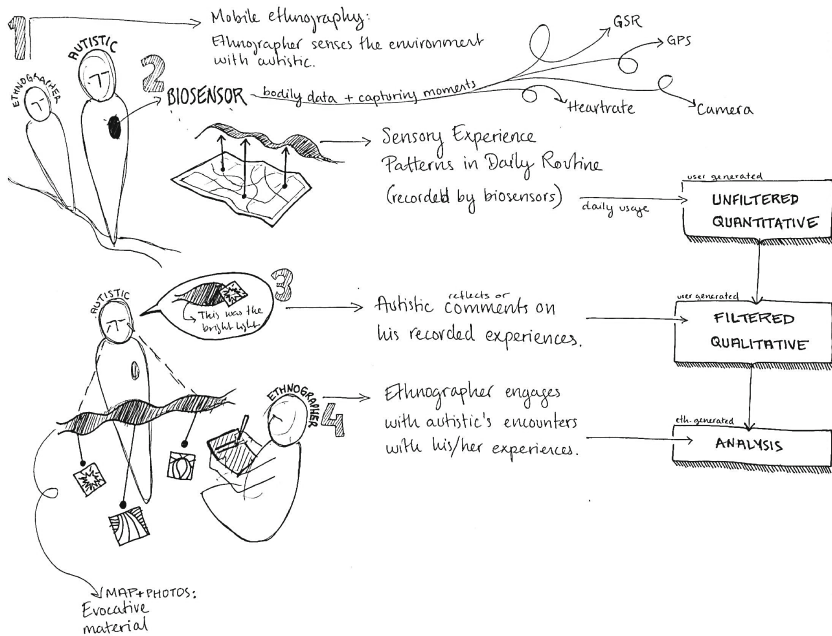 1
Mobile ethnography:
Ethnographer senses the environment
with autistic.
ETHNOGRAPHER
AUTISTIC
2
BIOSENSOR
bodily data + capturing moments
GSR
GPS
Heartrate
Camera
Sensory Experience
Patterns in Daily Routine
(recorded by biosensors)
daily usage
user generated
UNFILTERED
QUANTITATIVE
3
AUTISTIC
This was the
bright light.
reflects or
Autistic comments on
his recorded experiences.
user generated
FILTERED
QUALITATIVE
4
ETHNOGRAPHER
Ethnographer engages
with autistic's encounters
with his/her experiences.
eth. generated
ANALYSIS
MAP+PHOTOS:
Evocative
material